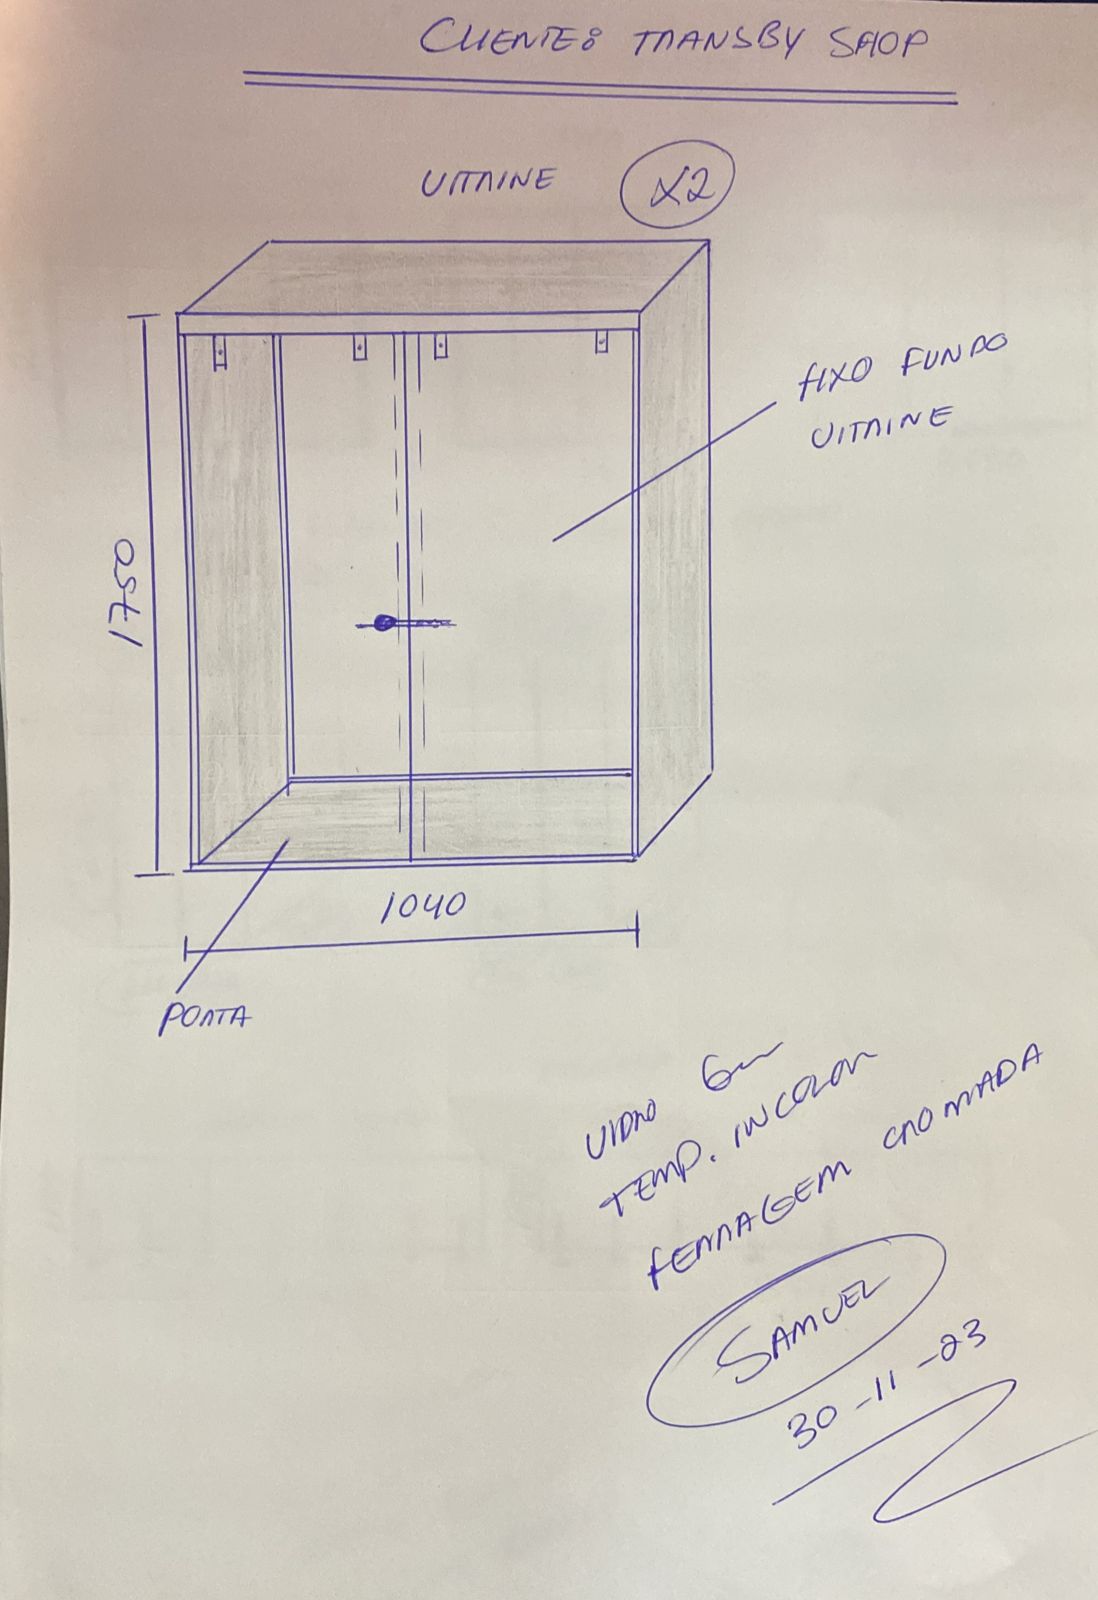 CLIENTE: TRANSBY SHOP
VITRINE X2
FIXO FUNDO
VITRINE
1750
1040
PORTA
VIDRO 6m
TEMP. INCOLOR
FERRAGEM CROMADA
SAMUEL
30-11-23